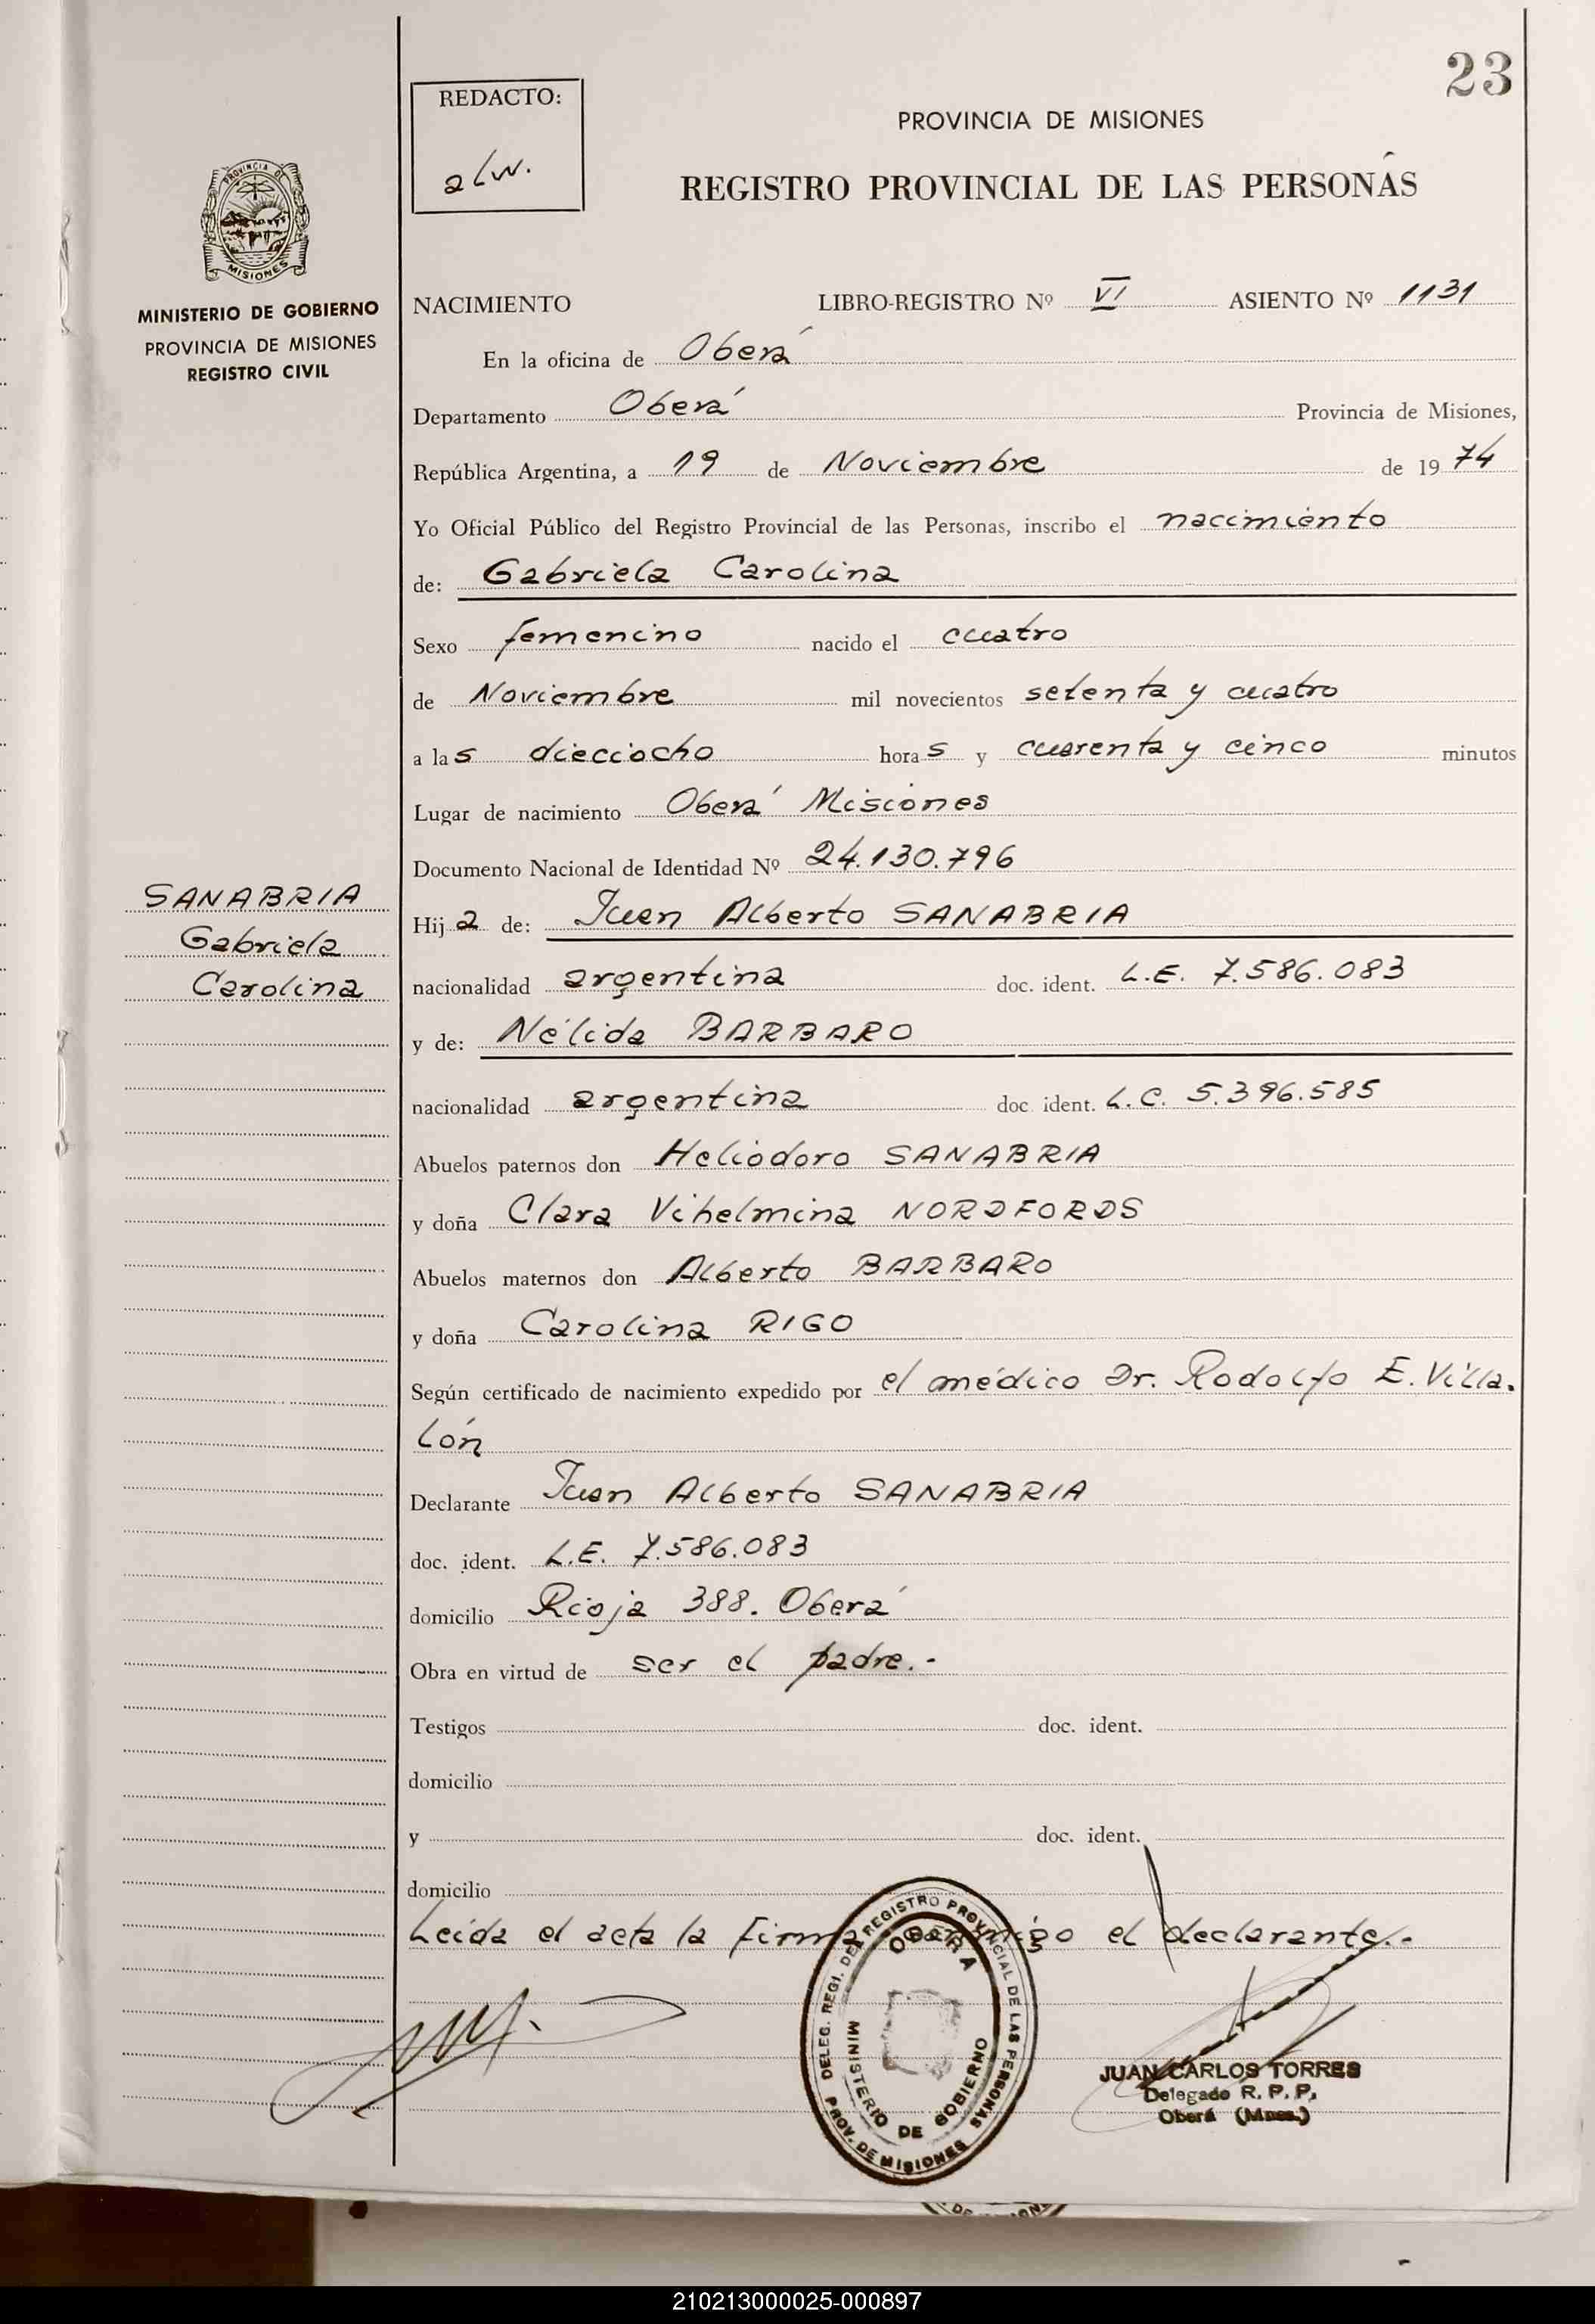 23
REDACTO:
alw.
PROVINCIA DE MISIONES
REGISTRO PROVINCIAL DE LAS PERSONAS
PROVINCIA DE
MISIONES
MINISTERIO DE GOBIERNO
PROVINCIA DE MISIONES
REGISTRO CIVIL
NACIMIENTO LIBRO-REGISTRO Nº VI ASIENTO Nº 1131
En la oficina de Oberá
Departamento Oberá Provincia de Misiones,
República Argentina, a 19 de Noviembre de 1974
Yo Oficial Público del Registro Provincial de las Personas, inscribo el nacimiento
de: Gabriela Carolina
Sexo femenino nacido el cuatro
de Noviembre mil novecientos setenta y cuatro
a las dieciocho horas y cuarenta y cinco minutos
Lugar de nacimiento Oberá Misiones
Documento Nacional de Identidad Nº 24.130.796
SANABRIA
Gabriela
Carolina
Hija de: Juan Alberto SANABRIA
nacionalidad argentina doc. ident. L.E. 7.586.083
y de: Nélida BARBARO
nacionalidad argentina doc. ident. L.C. 5.396.585
Abuelos paternos don Heliodoro SANABRIA
y doña Clara Vihelmina NORDFORDS
Abuelos maternos don Alberto BARBARO
y doña Carolina RIGO
Según certificado de nacimiento expedido por el médico Dr. Rodolfo E. Villa-
lón
Declarante Juan Alberto SANABRIA
doc. ident. L.E. 7.586.083
domicilio Rioja 388. Oberá
Obra en virtud de ser el padre.-
Testigos doc. ident.
domicilio
y doc. ident.
domicilio
Leída el acta la firma conmigo el declarante.-
DELEG. REGI. DEL REGISTRO PROVINCIAL DE LAS PERSONAS
OBERA
MINISTERIO DE GOBIERNO
PROV. DE MISIONES
JUAN CARLOS TORRES
Delegado R. P. P.
Oberá (Mnes.)
210213000025-000897